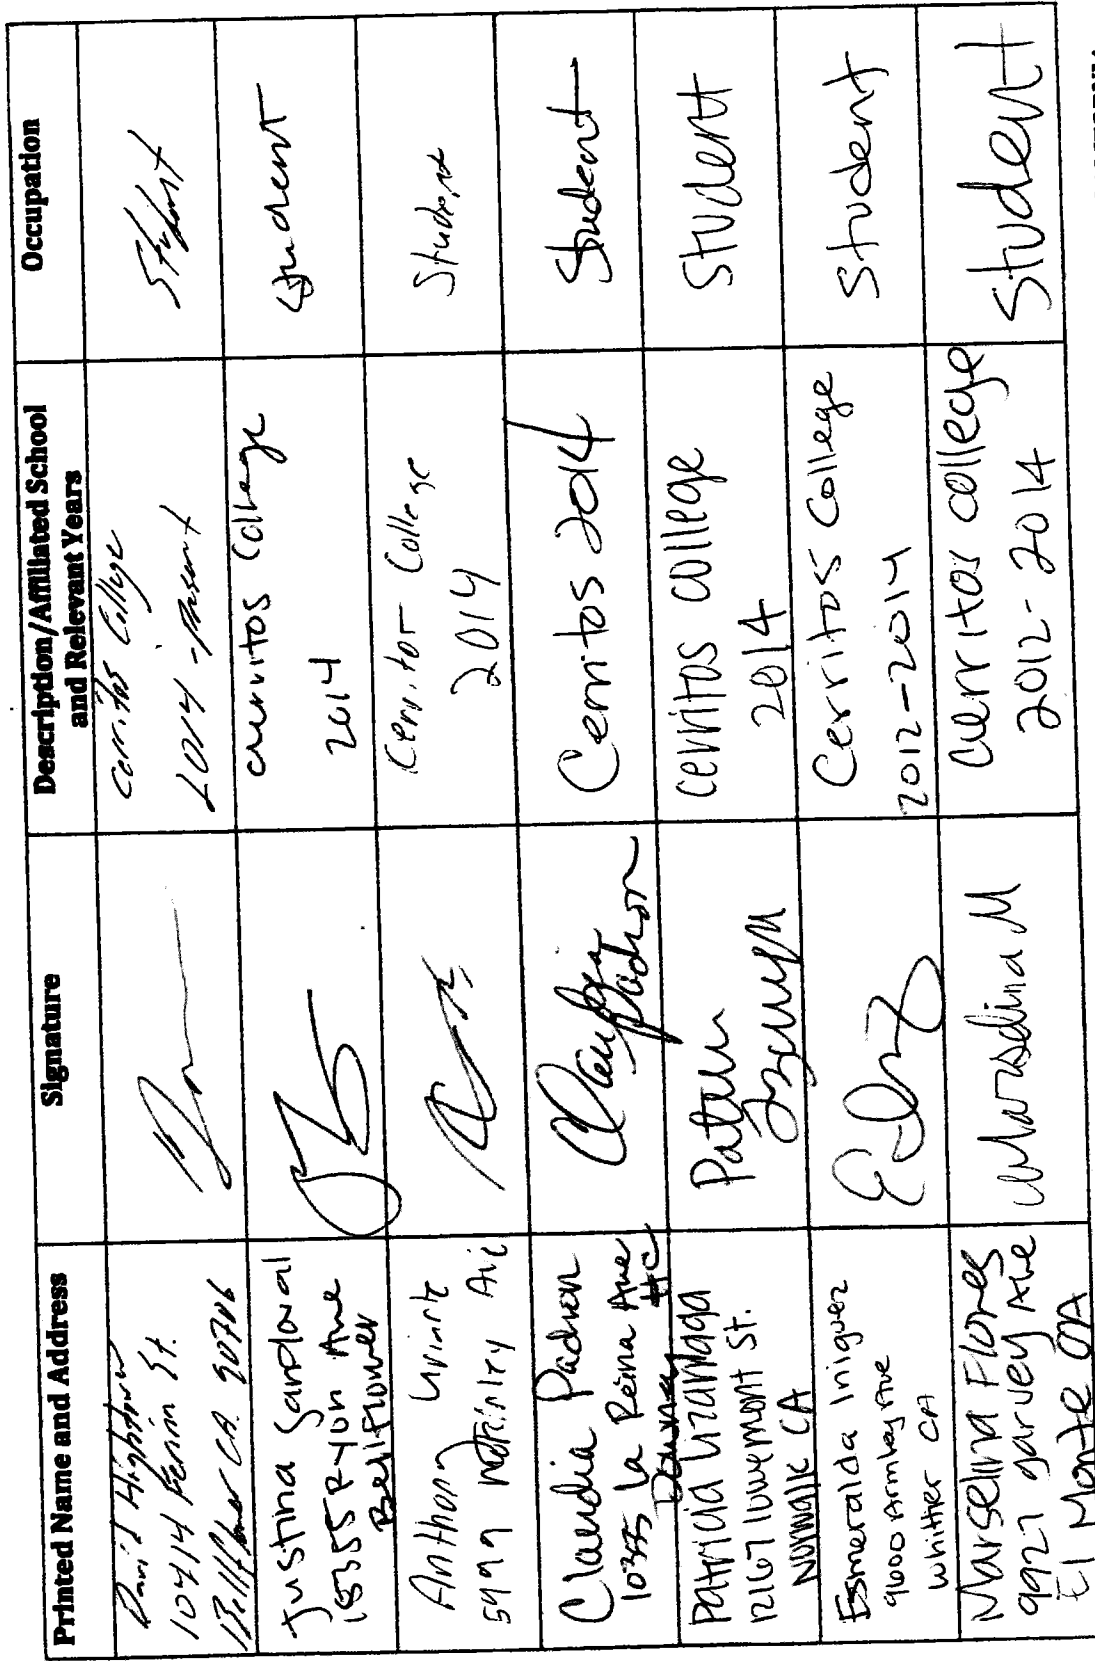 Printed Name and Address
Signature
Description/Affiliated School
and Relevant Years
Occupation
David Hightower
10414 St.
Bellflower CA. 90706
Cerritos College
2014 - Present
Student
Justina Sandoval
18355 Ryon Ave
Bellflower
cerritos College
2014
Student
Anthony
5999 McKinley Ave
Cerritos College
2014
Student
Claudia Padron
10355 La Reina Ave
#C
Downey
Claudia
Padron
Cerritos 2014
Student
Patricia Lizarraga
12167 lowemont St.
Norwalk CA
cerritos college
2014
Student
Esmeralda Iniguez
9600 Armley Ave
Whittier CA
Cerritos College
2012-2014
Student
Marselina Flores
9927 garvey Ave
El Monte CA
Marselina M
Cerritos college
2012-2014
Student